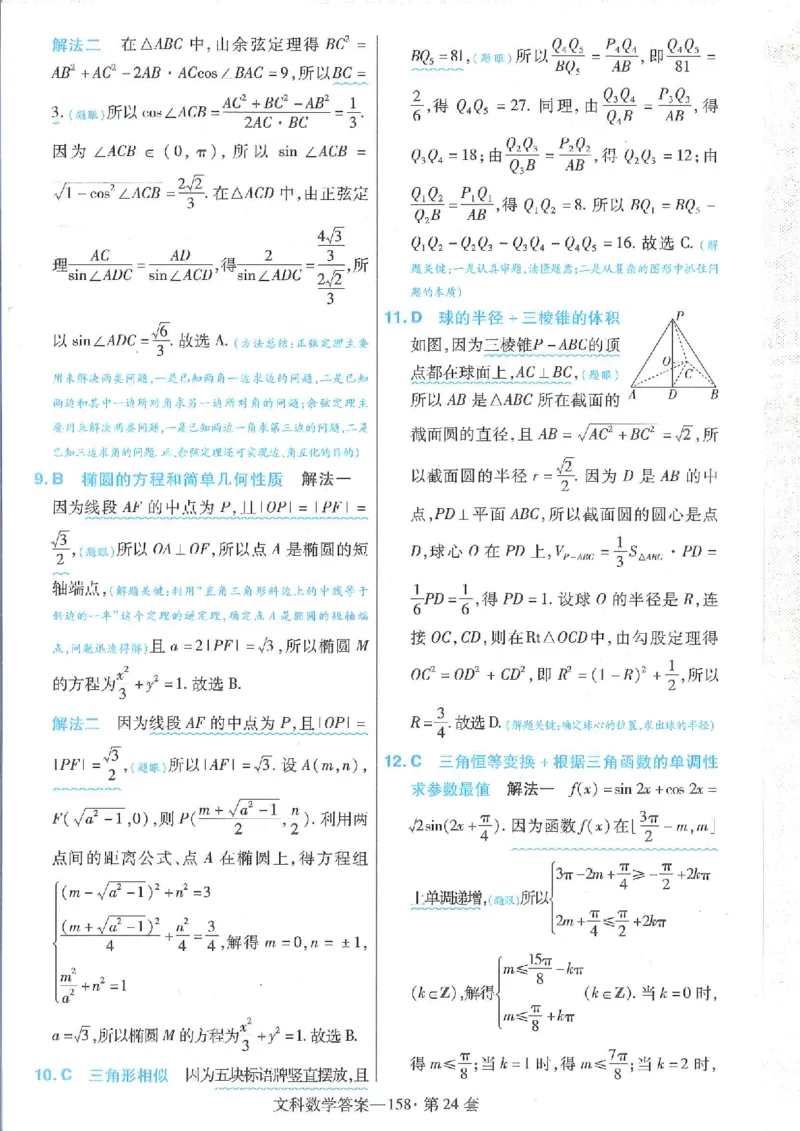 解法二 在△ABC 中,由余弦定理得 BC² =
AB² + AC² - 2AB · ACcos∠BAC = 9,所以BC =
3.(题眼)所以 cos∠ACB = (AC² + BC² - AB²)/(2AC · BC) = 1/3.
因为 ∠ACB ∈ (0, π), 所以 sin ∠ACB =
√(1 - cos²∠ACB) = 2√2/3. 在△ACD 中,由正弦定
理 AC/sin∠ADC = AD/sin∠ACD,得 2/sin∠ADC = (4√3/3)/(2√2/3),所
以 sin∠ADC = √6/3. 故选 A.(方法总结:正弦定理主要
用来解决两类问题,一是已知两角一边求边的问题,二是已知
两边和其中一边所对角求另一边所对角的问题;余弦定理主
要用来解决两类问题,一是已知两边一角求第三边的问题,二是
已知三边求角的问题.正、余弦定理还可实现边、角互化的目的)
9. B 椭圆的方程和简单几何性质 解法一
因为线段 AF 的中点为 P,且|OP| = |PF| =
√3/2,(题眼)所以 OA⊥OF,所以点 A 是椭圆的短
轴端点,(解题关键:利用“直角三角形斜边上的中线等于
斜边的一半”这个定理的逆定理,确定点 A 是椭圆的短轴端
点,问题迅速得解)且 a = 2|PF| = √3,所以椭圆 M
的方程为 x²/3 + y² = 1. 故选 B.
解法二 因为线段 AF 的中点为 P,且|OP| =
|PF| = √3/2,(题眼)所以|AF| = √3. 设 A(m,n),
F(√(a² - 1),0),则 P((m + √(a² - 1))/2, n/2). 利用两
点间的距离公式、点 A 在椭圆上,得方程组
{(m - √(a² - 1))² + n² = 3
(m + √(a² - 1))²/4 + n²/4 = 3/4,解得 m = 0,n = ±1,
m²/a² + n² = 1
a = √3,所以椭圆 M 的方程为 x²/3 + y² = 1. 故选 B.
10. C 三角形相似 因为五块标语牌竖直摆放,且
BQ₅ = 81,(题眼)所以 Q₄Q₅/BQ₅ = P₄Q₄/AB,即 Q₄Q₅/81 =
2/6,得 Q₄Q₅ = 27. 同理,由 Q₃Q₄/Q₄B = P₃Q₃/AB,得
Q₃Q₄ = 18;由 Q₂Q₃/Q₃B = P₂Q₂/AB,得 Q₂Q₃ = 12;由
Q₁Q₂/Q₂B = P₁Q₁/AB,得 Q₁Q₂ = 8. 所以 BQ₁ = BQ₅ -
Q₁Q₂ - Q₂Q₃ - Q₃Q₄ - Q₄Q₅ = 16. 故选 C.(解
题关键:一是认真审题,读懂题意;二是从复杂的图形中抓住问
题的本质)
11. D 球的半径 + 三棱锥的体积
如图,因为三棱锥P - ABC的顶
点都在球面上,AC⊥BC,(题眼)
所以 AB 是△ABC 所在截面的
P
O
C
A D B
截面圆的直径,且 AB = √(AC² + BC²) = √2,所
以截面圆的半径 r = √2/2. 因为 D 是 AB 的中
点,PD⊥平面 ABC,所以截面圆的圆心是点
D,球心 O 在 PD 上,V_{P-ABC} = 1/3 S_{△ABC} · PD =
1/6 PD = 1/6,得 PD = 1. 设球 O 的半径是 R,连
接 OC,CD,则在Rt△OCD中,由勾股定理得
OC² = OD² + CD²,即 R² = (1 - R)² + 1/2,所以
R = 3/4. 故选 D.(解题关键:确定球心的位置,求出球的半径)
12. C 三角恒等变换 + 根据三角函数的单调性
求参数最值 解法一 f(x) = sin 2x + cos 2x =
√2sin(2x + π/4). 因为函数f(x)在[3π/2 - m,m]
上单调递增,(题眼)所以{3π - 2m + π/4 ≥ -π/2 + 2kπ
2m + π/4 ≤ π/2 + 2kπ
(k∈Z),解得{m ≤ 15π/8 - kπ
m ≤ π/8 + kπ (k∈Z). 当 k = 0 时,
得 m ≤ π/8;当 k = 1 时,得 m ≤ 7π/8;当 k = 2 时,
文科数学答案—158 · 第 24 套